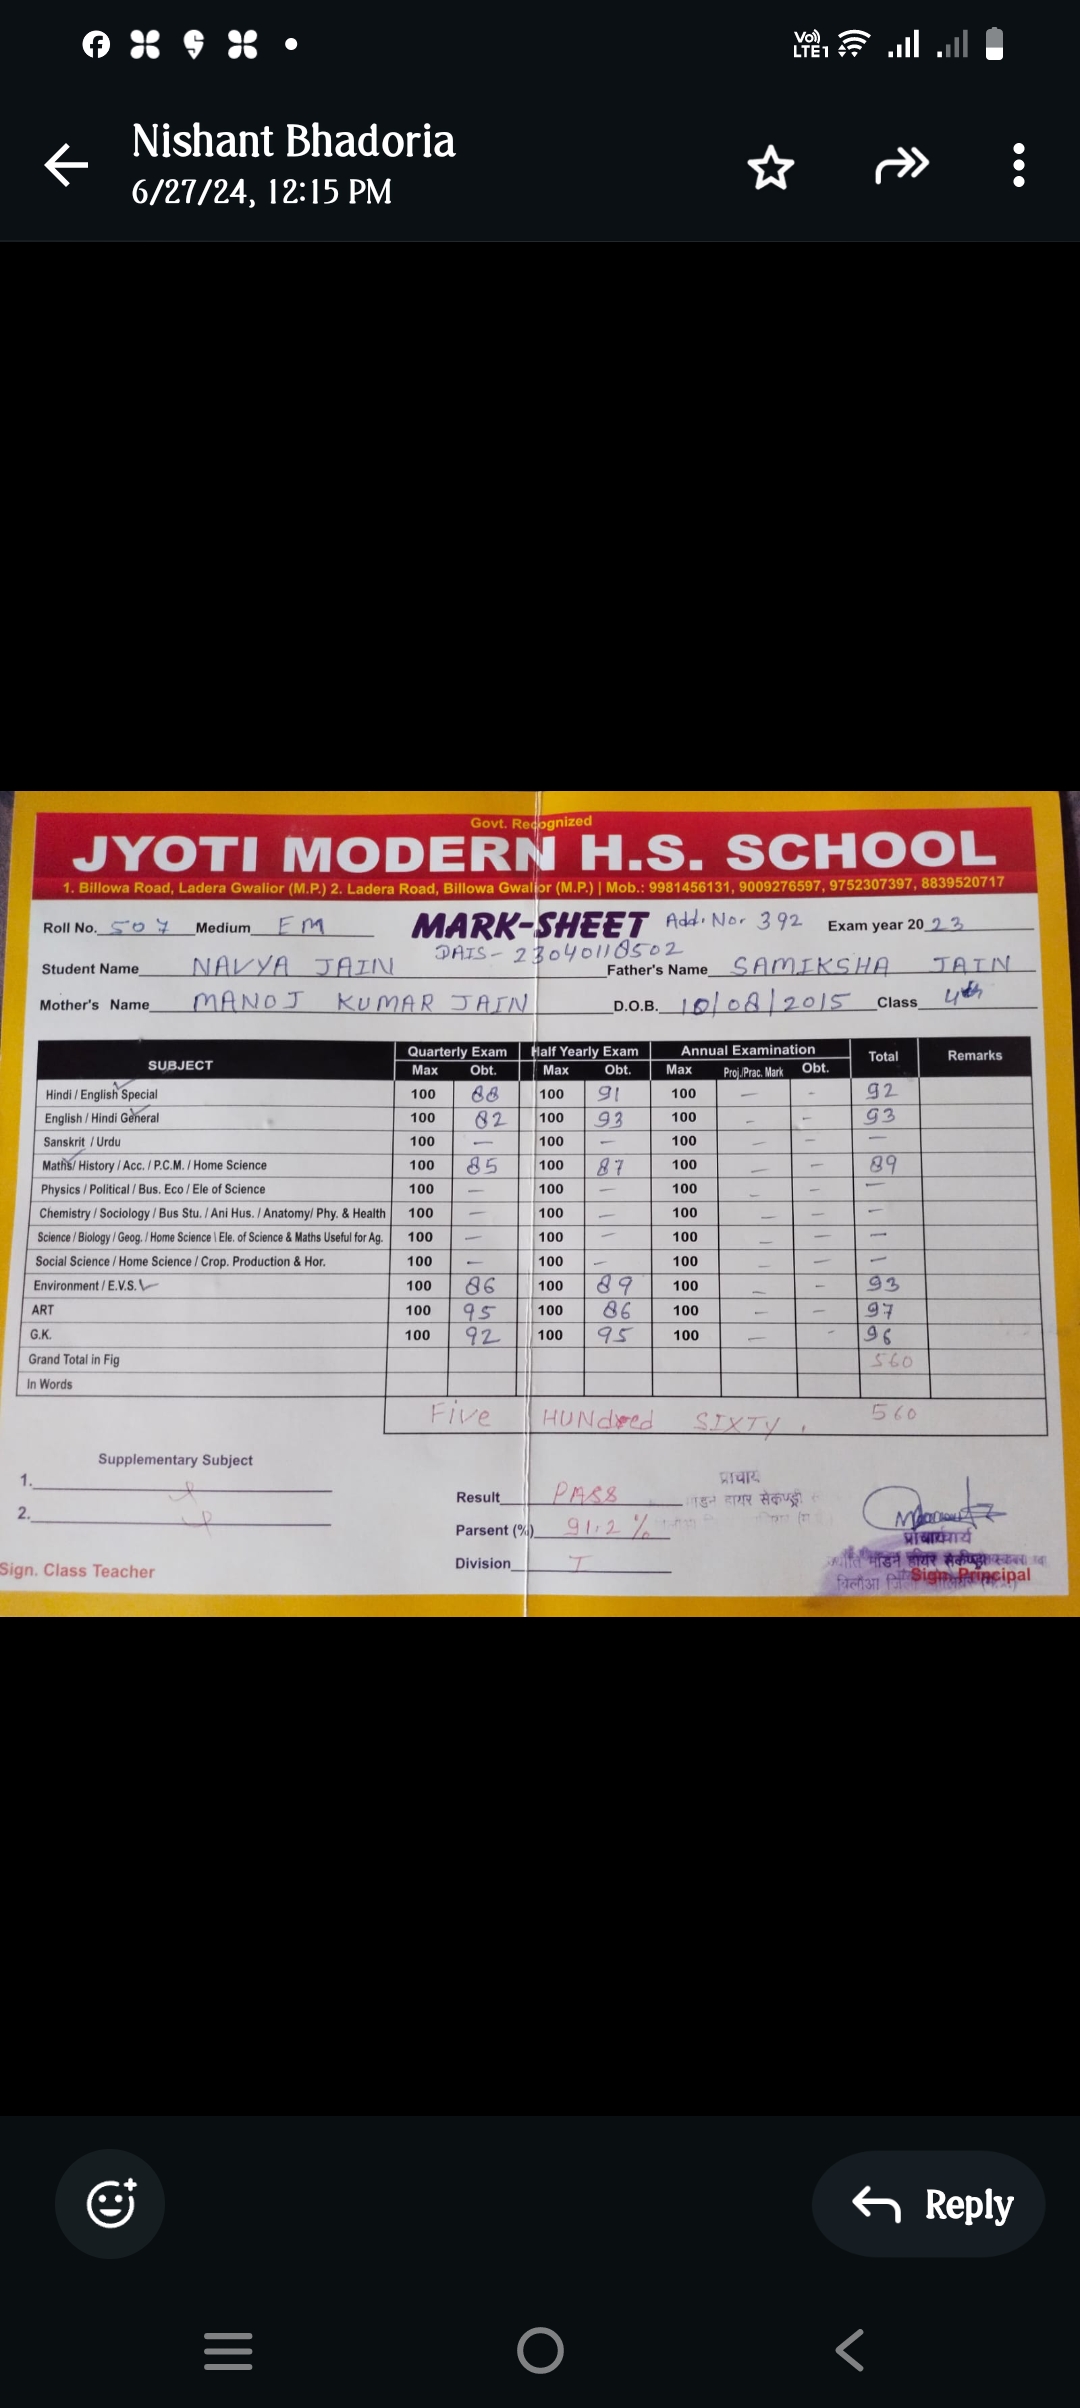 Vo)) LTE1
Nishant Bhadoria
6/27/24, 12:15 PM
Govt. Recognized
JYOTI MODERN H.S. SCHOOL
1. Billowa Road, Ladera Gwalior (M.P.) 2. Ladera Road, Billowa Gwalior (M.P.) | Mob.: 9981456131, 9009276597, 9752307397, 8839520717
Roll No. 507 Medium EM MARK-SHEET Add. No. 392 Exam year 20 23
DAIS - 23040118502
Student Name NAVYA JAIN Father's Name SAMIKSHA JAIN
Mother's Name MANOJ KUMAR JAIN D.O.B. 10/08/2015 Class 4th
SUBJECT Quarterly Exam Half Yearly Exam Annual Examination Total Remarks
Max Obt. Max Obt. Max Proj./Prac. Mark Obt.
Hindi / English Special 100 88 100 91 100 - - 92
English / Hindi General 100 82 100 93 100 - - 93
Sanskrit / Urdu 100 - 100 - 100 - - -
Maths/ History / Acc. / P.C.M. / Home Science 100 85 100 87 100 - - 89
Physics / Political / Bus. Eco / Ele of Science 100 - 100 - 100 - - -
Chemistry / Sociology / Bus Stu. / Ani Hus. / Anatomy/ Phy. & Health 100 - 100 - 100 - - -
Science / Biology / Geog. / Home Science \ Ele. of Science & Maths Useful for Ag. 100 - 100 - 100 - - -
Social Science / Home Science / Crop. Production & Hor. 100 - 100 - 100 - - -
Environment / E.V.S. 100 86 100 89 100 - - 93
ART 100 95 100 86 100 - - 97
G.K. 100 92 100 95 100 - - 96
Grand Total in Fig 560
In Words
Five HUNdred SIXTY. 560
Supplementary Subject
1.
2.
Result PASS
Parsent (%) 91.2 %
Division I
प्राचार्य
Sign. Class Teacher
Sign. Principal
Reply